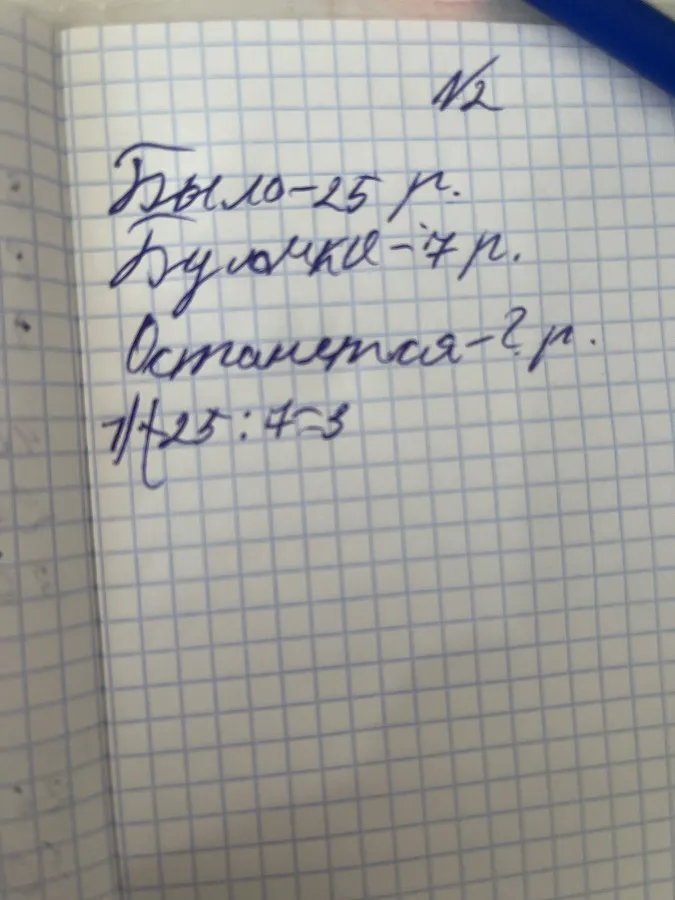 №2
Было-25 р.
Булочки-7 р.
Останется-? р.
1) 25:7=3